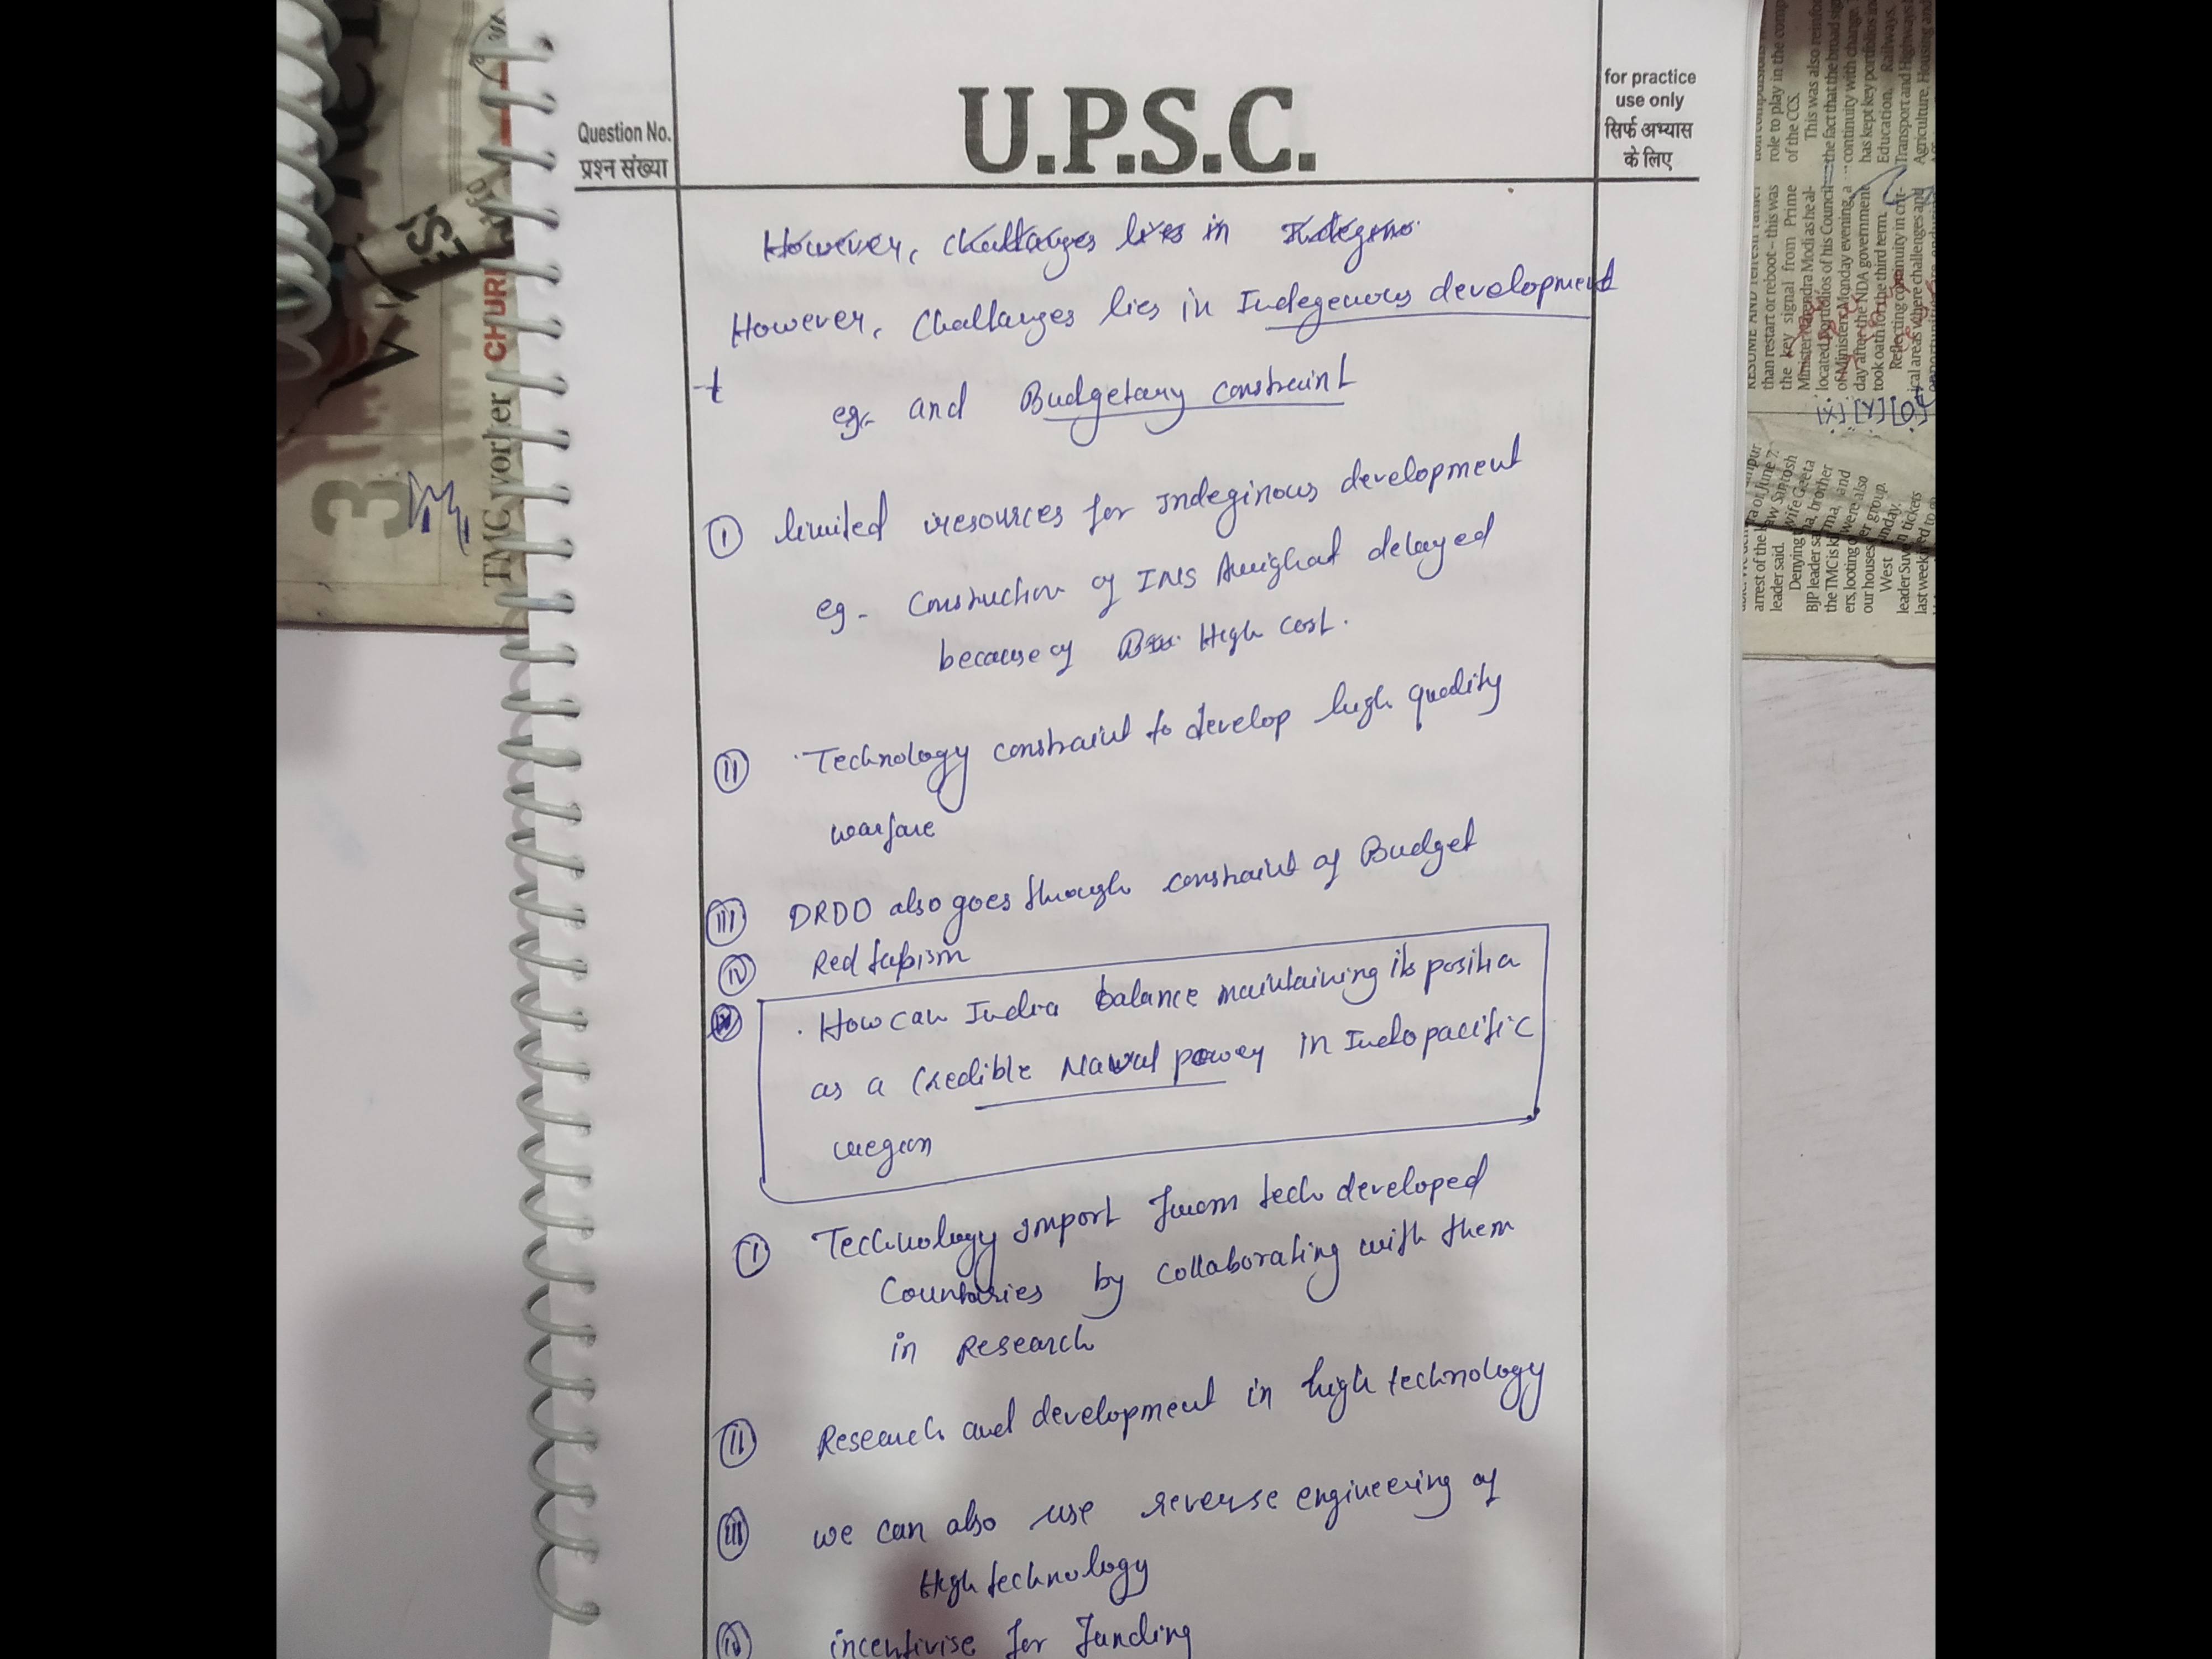 U.P.S.C.
Question No.
प्रश्न संख्या
for practice
use only
सिर्फ अभ्यास
के लिए
However, Challanges lies in Indegno
However, Challanges lies in Indegenous development
eg- and Budgetary constraint
I limited resources for Indeginous development
eg - Construction of INS Arighat delayed
because of High cost.
II Technology constraint to develop high quality
warfare
III DRDO also goes through constraint of Budget
IV Red tapism
How can India balance maintaining its position
as a Credible Naval power in Indopacific
region
I Technology import from tech developed
Countries by collaborating with them
in Research
II Research and development in high technology
III we can also use reverse engineering of
High technology
IV incentivise for funding
3
TMC worker
CHURI
RESUME AND refresh rather
than restart or reboot – this was
the key signal from Prime
Minister Narendra Modi as he al-
located portfolios of his Council
of Ministers Monday evening, a
day after the NDA government
took oath for the third term.
Reflecting continuity in crit-
ical areas where challenges and
role to play in the comp
of the CCS.
This was also reinfor
the fact that the broad sig
continuity with change.
has kept key portfolios in
Education, Railways,
Transport and Highways
Agriculture, Housing and
[X] [Y] [O]
arrest of the
leader said.
Denying
BJP leader
the TMC is
ers, looting
our houses
West
leader Suven
last week
wife Geeta
brother
and
were also
group.
tickets